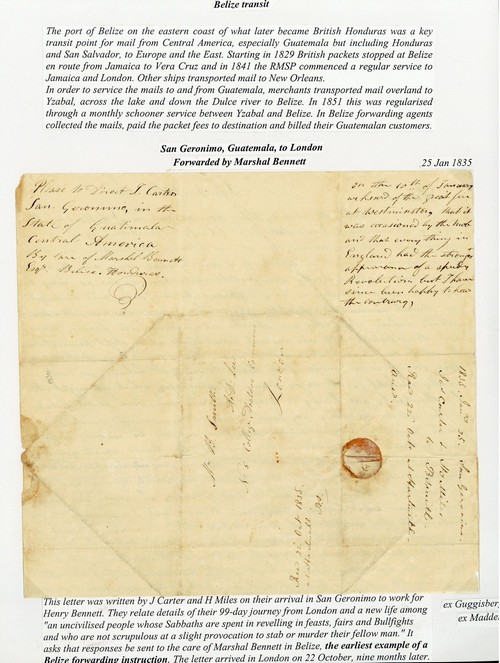 Belize transit
The port of Belize on the eastern coast of what later became British Honduras was a key
transit point for mail from Central America, especially Guatemala but including Honduras
and San Salvador, to Europe and the East. Starting in 1829 British packets stopped at Belize
en route from Jamaica to Vera Cruz and in 1841 the RMSP commenced a regular service to
Jamaica and London. Other ships transported mail to New Orleans.
In order to service the mails to and from Guatemala, merchants transported mail overland to
Yzabal, across the lake and down the Dulce river to Belize. In 1851 this was regularised
through a monthly schooner service between Yzabal and Belize. In Belize forwarding agents
collected the mails, paid the packet fees to destination and billed their Guatemalan customers.
San Geronimo, Guatemala, to London
Forwarded by Marshal Bennett
25 Jan 1835
Please to Direct J. Carter
San Geronimo, in the
State of Guatimala
Central America
By care of Marshal Bennett
Esqr Belize Honduras.
On the 10th of January
we heard of the great fire
at Westminster, that it
was occasioned by the mob
and that every thing in
England had the strongest
appearance of a speedy
Revolution but I have
since been happy to hear
the contrary,
Mr B. Smith
London
Recd 22 Oct 1835
1835 Jany 25. San Geronimo
Js Carter & H Miles
to B Smith
Recd 22 Octr
Ansd.
This letter was written by J Carter and H Miles on their arrival in San Geronimo to work for
Henry Bennett. They relate details of their 99-day journey from London and a new life among
"an uncivilised people whose Sabbaths are spent in revelling in feasts, fairs and Bullfights
and who are not scrupulous at a slight provocation to stab or murder their fellow man." It
asks that responses be sent to the care of Marshal Bennett in Belize, the earliest example of a
Belize forwarding instruction. The letter arrived in London on 22 October, nine months later.
ex Guggisber
ex Madde